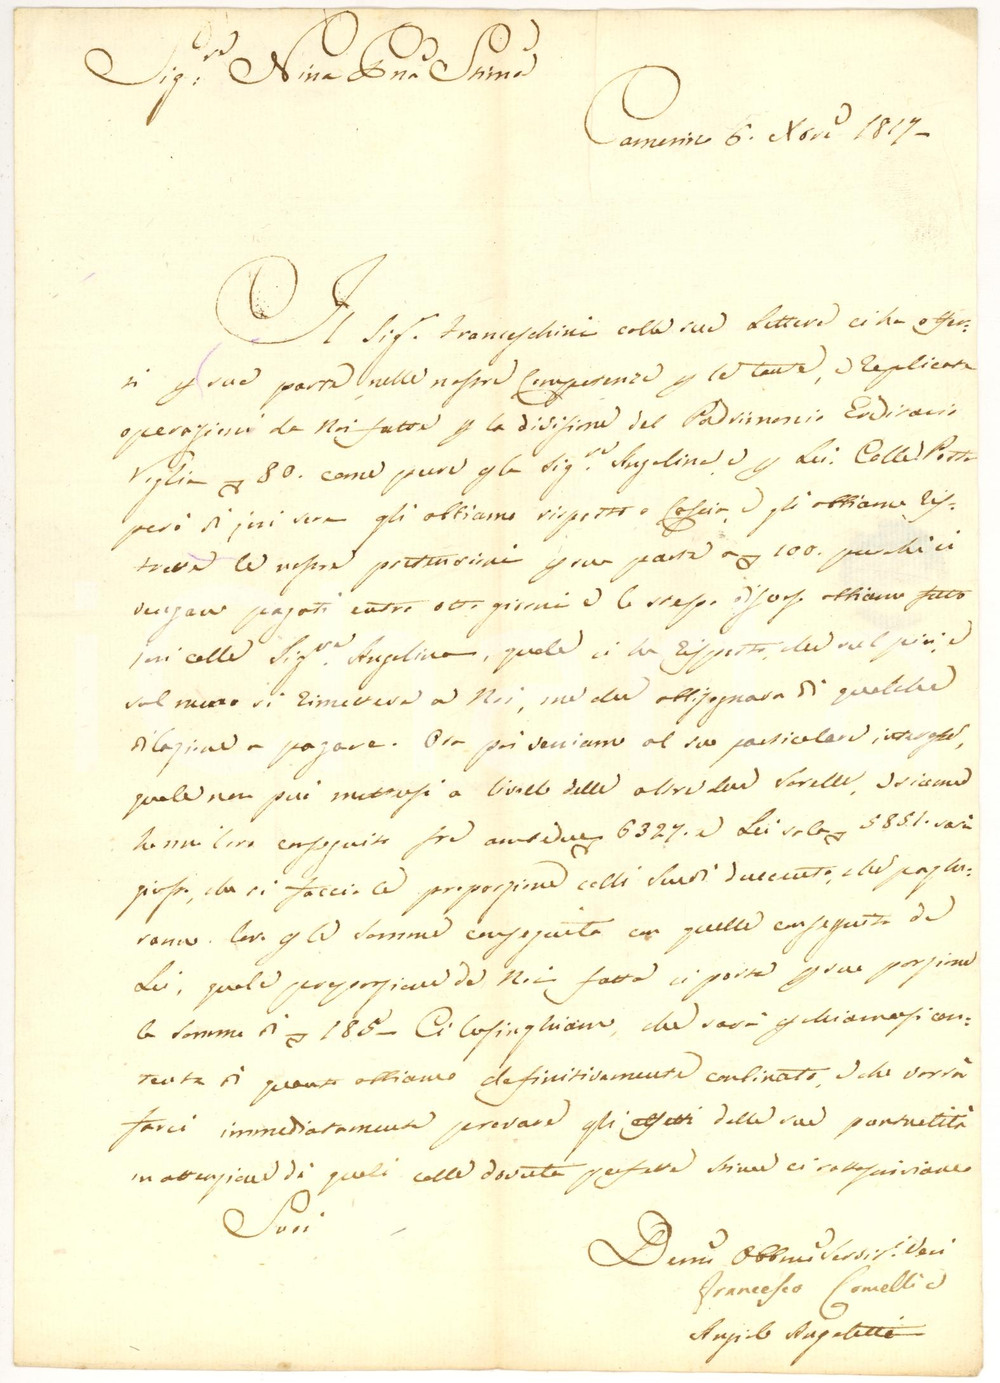 Sig.ra Nina Pna Stima
Camerino 6. Nove 1817
Il Sigr. Franceschini colle sue Lettere ci ha offer=
ti per sue parte nelle nostre Competenze per le tante, e replicate
operazioni da Noi fatte per la divisione del Patrimonio Ereditario
Viglia 80. come pure per la Sig.ra Angelina e per Lei. Colla Posta
però di jeri sera gli abbiamo risposto e gli abbiamo ris=
trette le nostre pretensioni per sue parte a 100. purchè ci
vengano pagati entro otto giorni e lo stesso discorso abbiamo fatto
jeri colla Sig.ra Angelina, quale ci ha risposto, che sul più, e
sul meno si rimetteva a Noi, ma che abbisognava di qualche
dilazione a pagare. Ora poi veniamo al suo particolare interesse,
quale non può mettersi a livello delle altre due Sorelle, e siccome
hanno loro conseguito fra ambedue 6327. e Lei sola 5851. sarà
giusto, che si faccia la proporzione colli Scudi duecento, che paghe=
ranno loro per le somme conseguite con quelle conseguite da
Lei, quale proporzione da Noi fatta ci porta per sua porzione
la somma di 185 Ci lusinghiamo, che sarà per chiamarsi con=
tenta di quanto abbiamo definitivamente combinato, e che vorrà
farci immediatamente provare gli effetti della sua puntualità
in attenzione di quali colla dovuta perfetta stima ci sottoscriviamo
Devmi Obbmi Servi
Francesco Comelli e
Angelo Angeletti